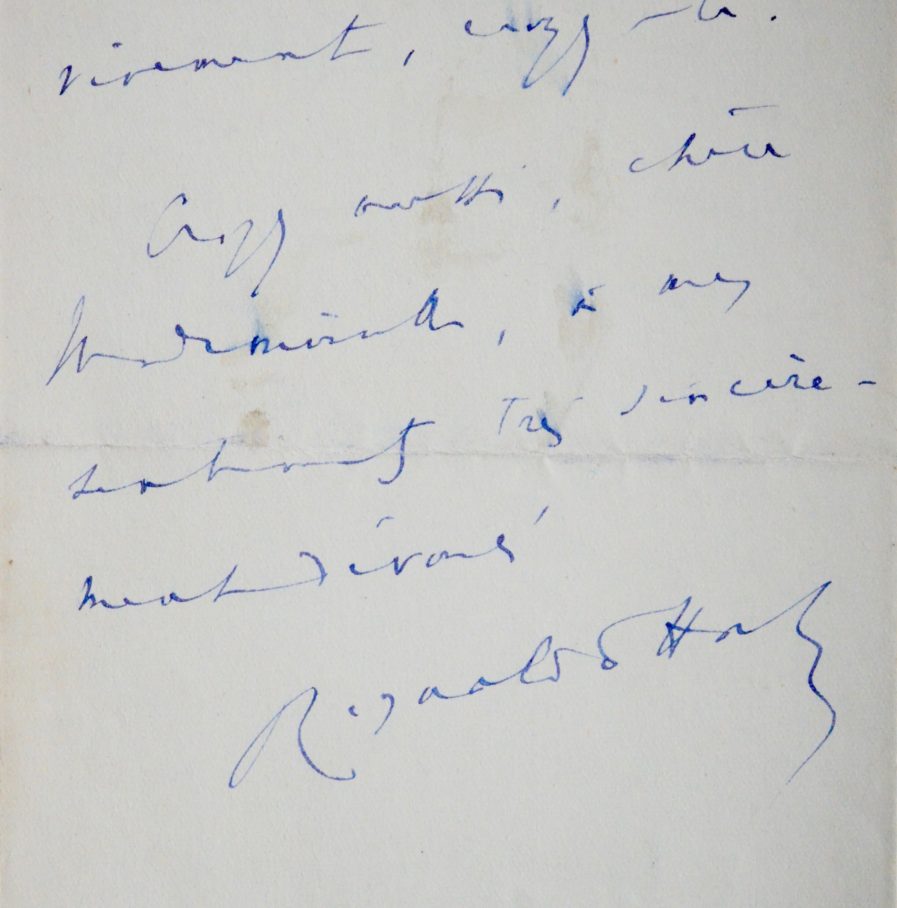 vivement, croyez-le.
Croyez aussi, chère
Mademoiselle, à mes
sentiments très sincère-
ment dévoués
Reynaldo Hahn